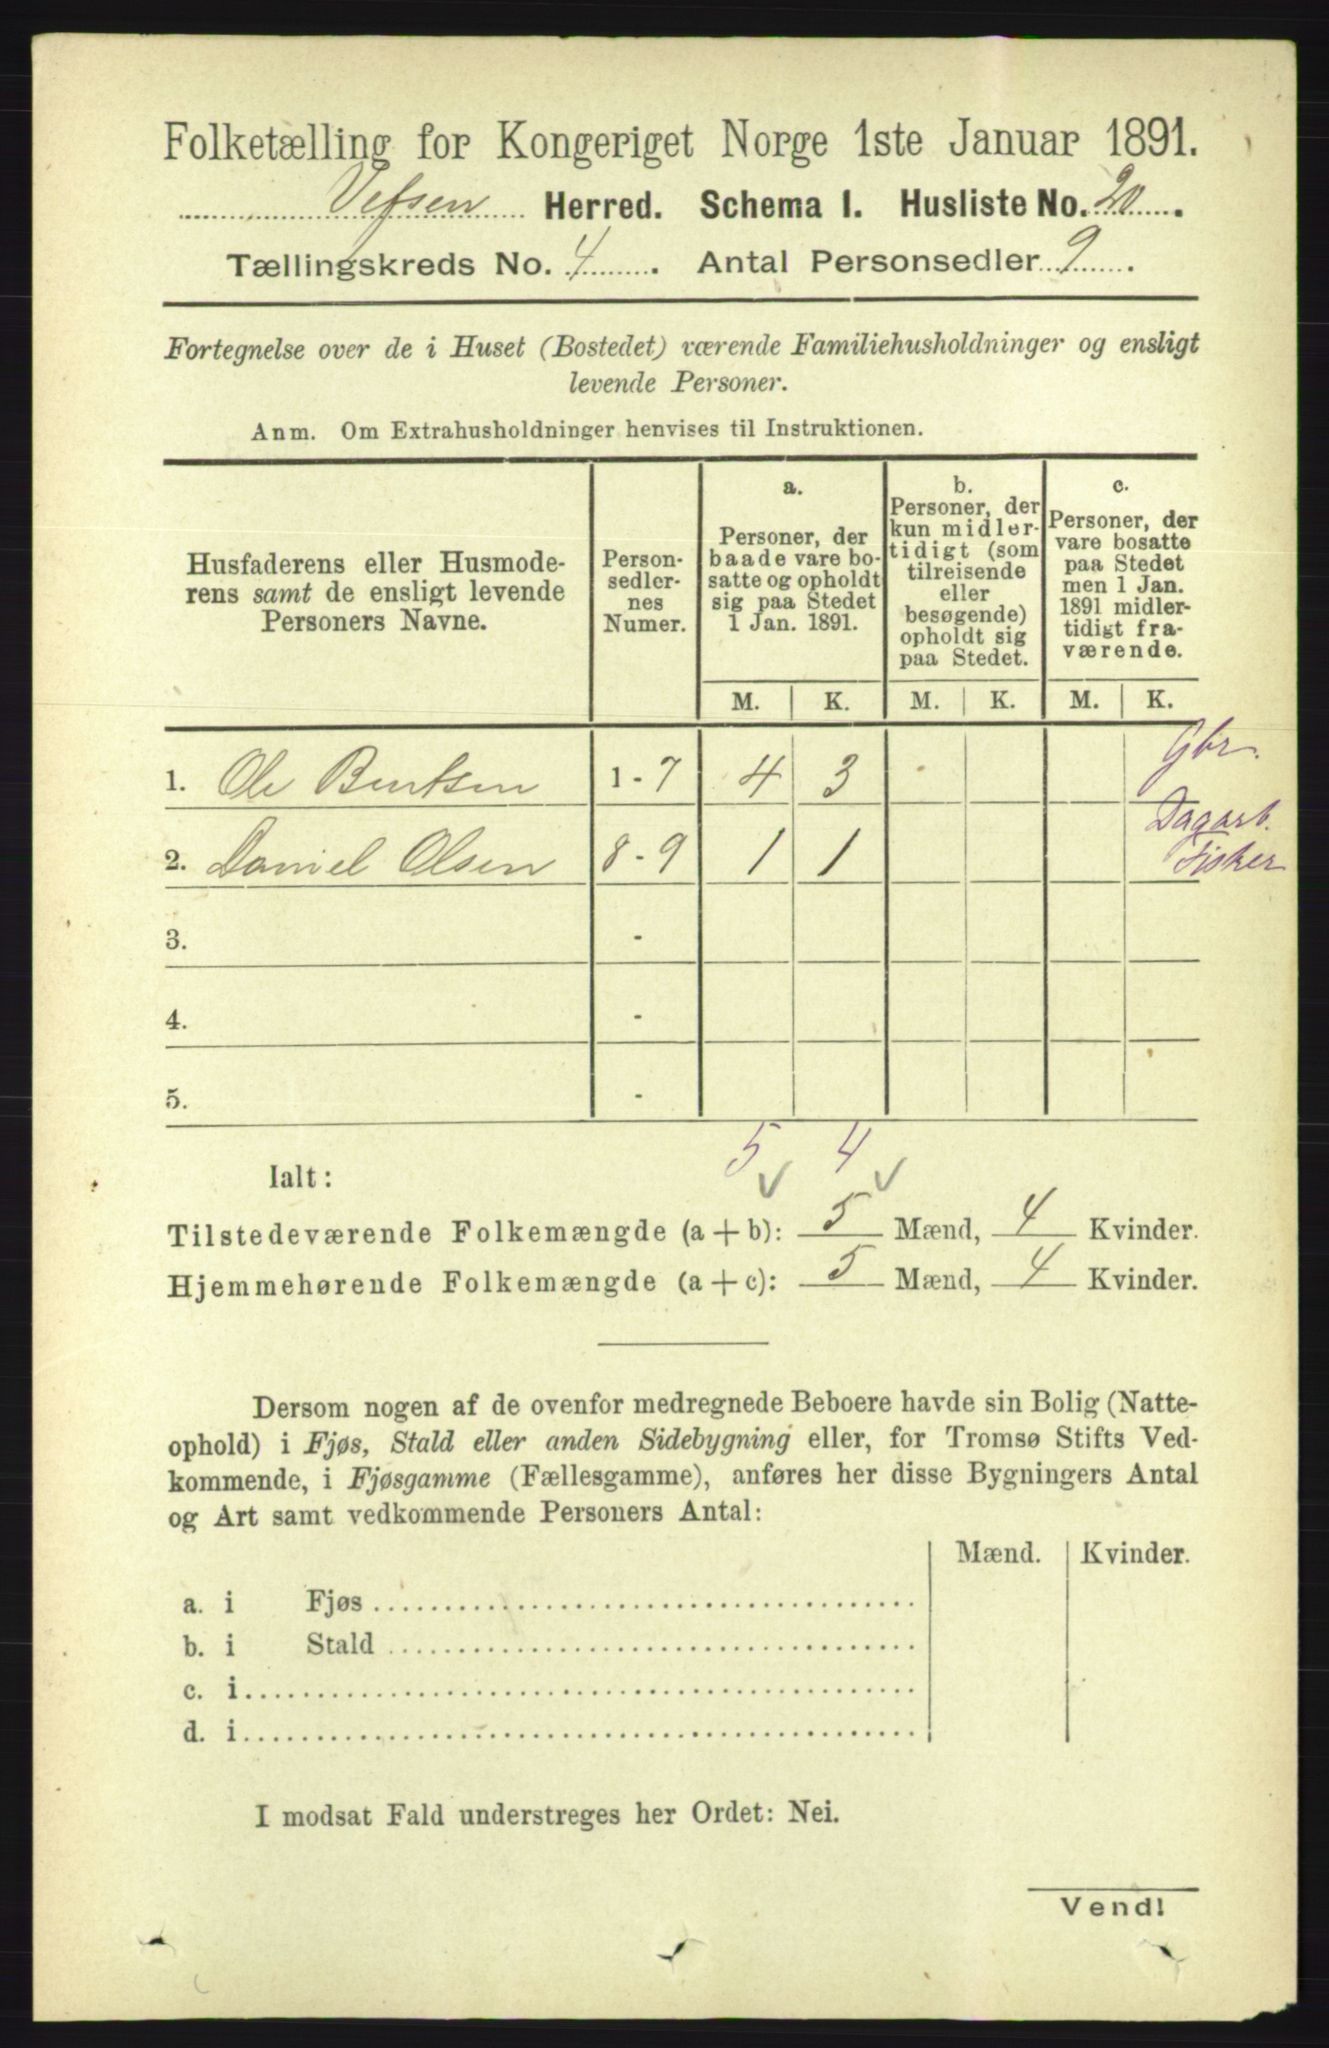 Folketælling for Kongeriget Norge 1ste Januar 1891.
Vefsen Herred. Schema I. Husliste No. 20.
Tællingskreds No. 4. Antal Personsedler 9.
Fortegnelse over de i Huset (Bostedet) værende Familiehusholdninger og ensligt
levende Personer.
Anm. Om Extrahusholdninger henvises til Instruktionen.
Husfaderens eller Husmode-
rens samt de ensligt levende
Personers Navne.
Person-
sedler-
nes
Numer.
a.
Personer, der
baade vare bo-
satte og opholdt
sig paa Stedet
1 Jan. 1891.
b.
Personer, der
kun midler-
tidigt (som
tilreisende
eller
besøgende)
opholdt sig
paa Stedet.
c.
Personer, der
vare bosatte
paa Stedet
men 1 Jan.
1891 midler-
tidigt fra-
værende.
M. K. M. K. M. K.
1. Ole Bentsen 1 - 7 4 3 Gbr.
2. Daniel Olsen 8 - 9 1 1 Dagarb. Fisker
3. -
4. -
5. -
5 4
Ialt:
Tilstedeværende Folkemængde (a + b): 5 Mænd, 4 Kvinder.
Hjemmehørende Folkemængde (a + c): 5 Mænd, 4 Kvinder.
Dersom nogen af de ovenfor medregnede Beboere havde sin Bolig (Natte-
ophold) i Fjøs, Stald eller anden Sidebygning eller, for Tromsø Stifts Ved-
kommende, i Fjøsgamme (Fællesgamme), anføres her disse Bygningers Antal
og Art samt vedkommende Personers Antal:
Mænd. Kvinder.
a. i Fjøs
b. i Stald
c. i
d. i
I modsat Fald understreges her Ordet: Nei.
Vend!